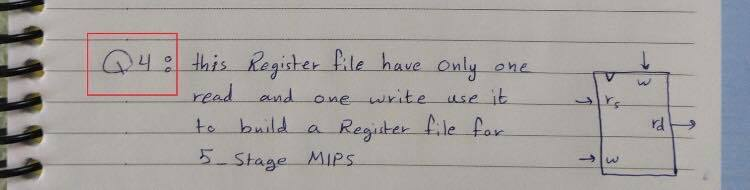 Q4: this Register file have only one
read and one write use it
to build a Register file for
5-Stage MIPS
w
rs
rd
w